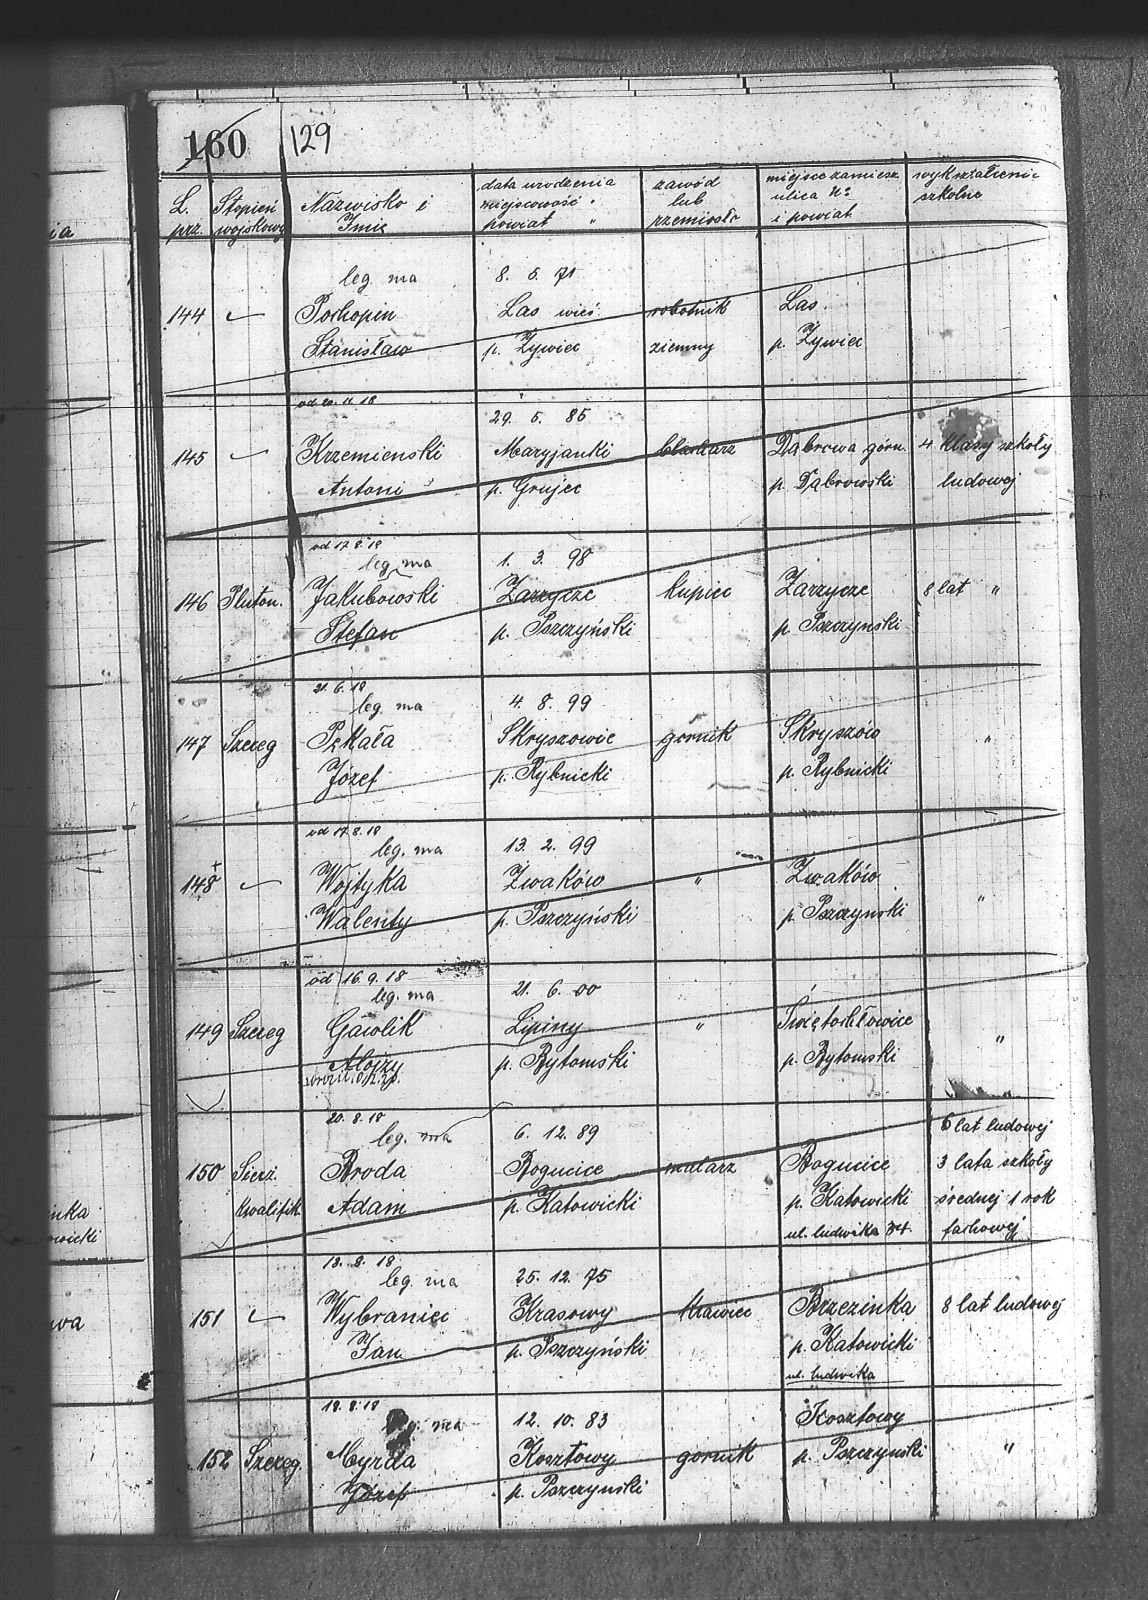 160 129
L. prz. Stopień wojskowy Nazwisko i Imię data urodzenia miejscowość " powiat " zawód lub rzemiosło miejsce zamiesz. ulica No i powiat wykształcenie szkolne
leg. ma 8. 5. 71
144 Pochopin Las wieś robotnik Las.
Stanisław p. Żywiec ziemny p. Żywiec
od 20. 11. 18 29. 5. 85
145 Krzemienski Maryjanki blacharz Dąbrowa górn. 4 klasy szkoły
Antoni p. Grujec p. Dąbrowski ludowej
od 17. 8. 18
leg. ma 1. 3. 98
146 Pluton. Jakubowski Zarzycze kupiec Zarzycze 8 lat "
Stefan p. Pszczyński p. Pszczynski
21. 6. 18
leg. ma 4. 8. 99
147 Szereg Pękała Skryszowie gornik Skryszów "
Józef p. Rybnicki p. Rybnicki
od 17. 8. 18
leg. ma 13. 2. 99
148 Wojtyka Żwaków " Żwaków "
Walenty p. Pszczyński p. Pszczynski
od 16. 9. 18
leg. ma 21. 6. 00
149 Szereg Gawlik Lipiny " Świętochłowice "
Alojzy p. Bytomski p. Bytomski
20. 8. 18 6 lat ludowej
leg. ma 6. 12. 89
150 Sierż. Broda Bogucice malarz Bogucice 3 lata szkoły
kwalifik. Adam p. Katowicki p. Katowicki średnej 1 rok
ul. ludwika 34. fachowej
18. 8. 18
leg. ma 25. 12. 75
151 Wybraniec Krasowy krawiec Brzezinka 8 lat ludowej
Jan p. Pszczyński p. Katowicki
ul. ludwika
18. 8. 18
leg. ma 12. 10. 83 Kosztowy
152 Szereg. Myrda Kosztowy gornik p. Pszczynski "
Józef p. Pszczynski